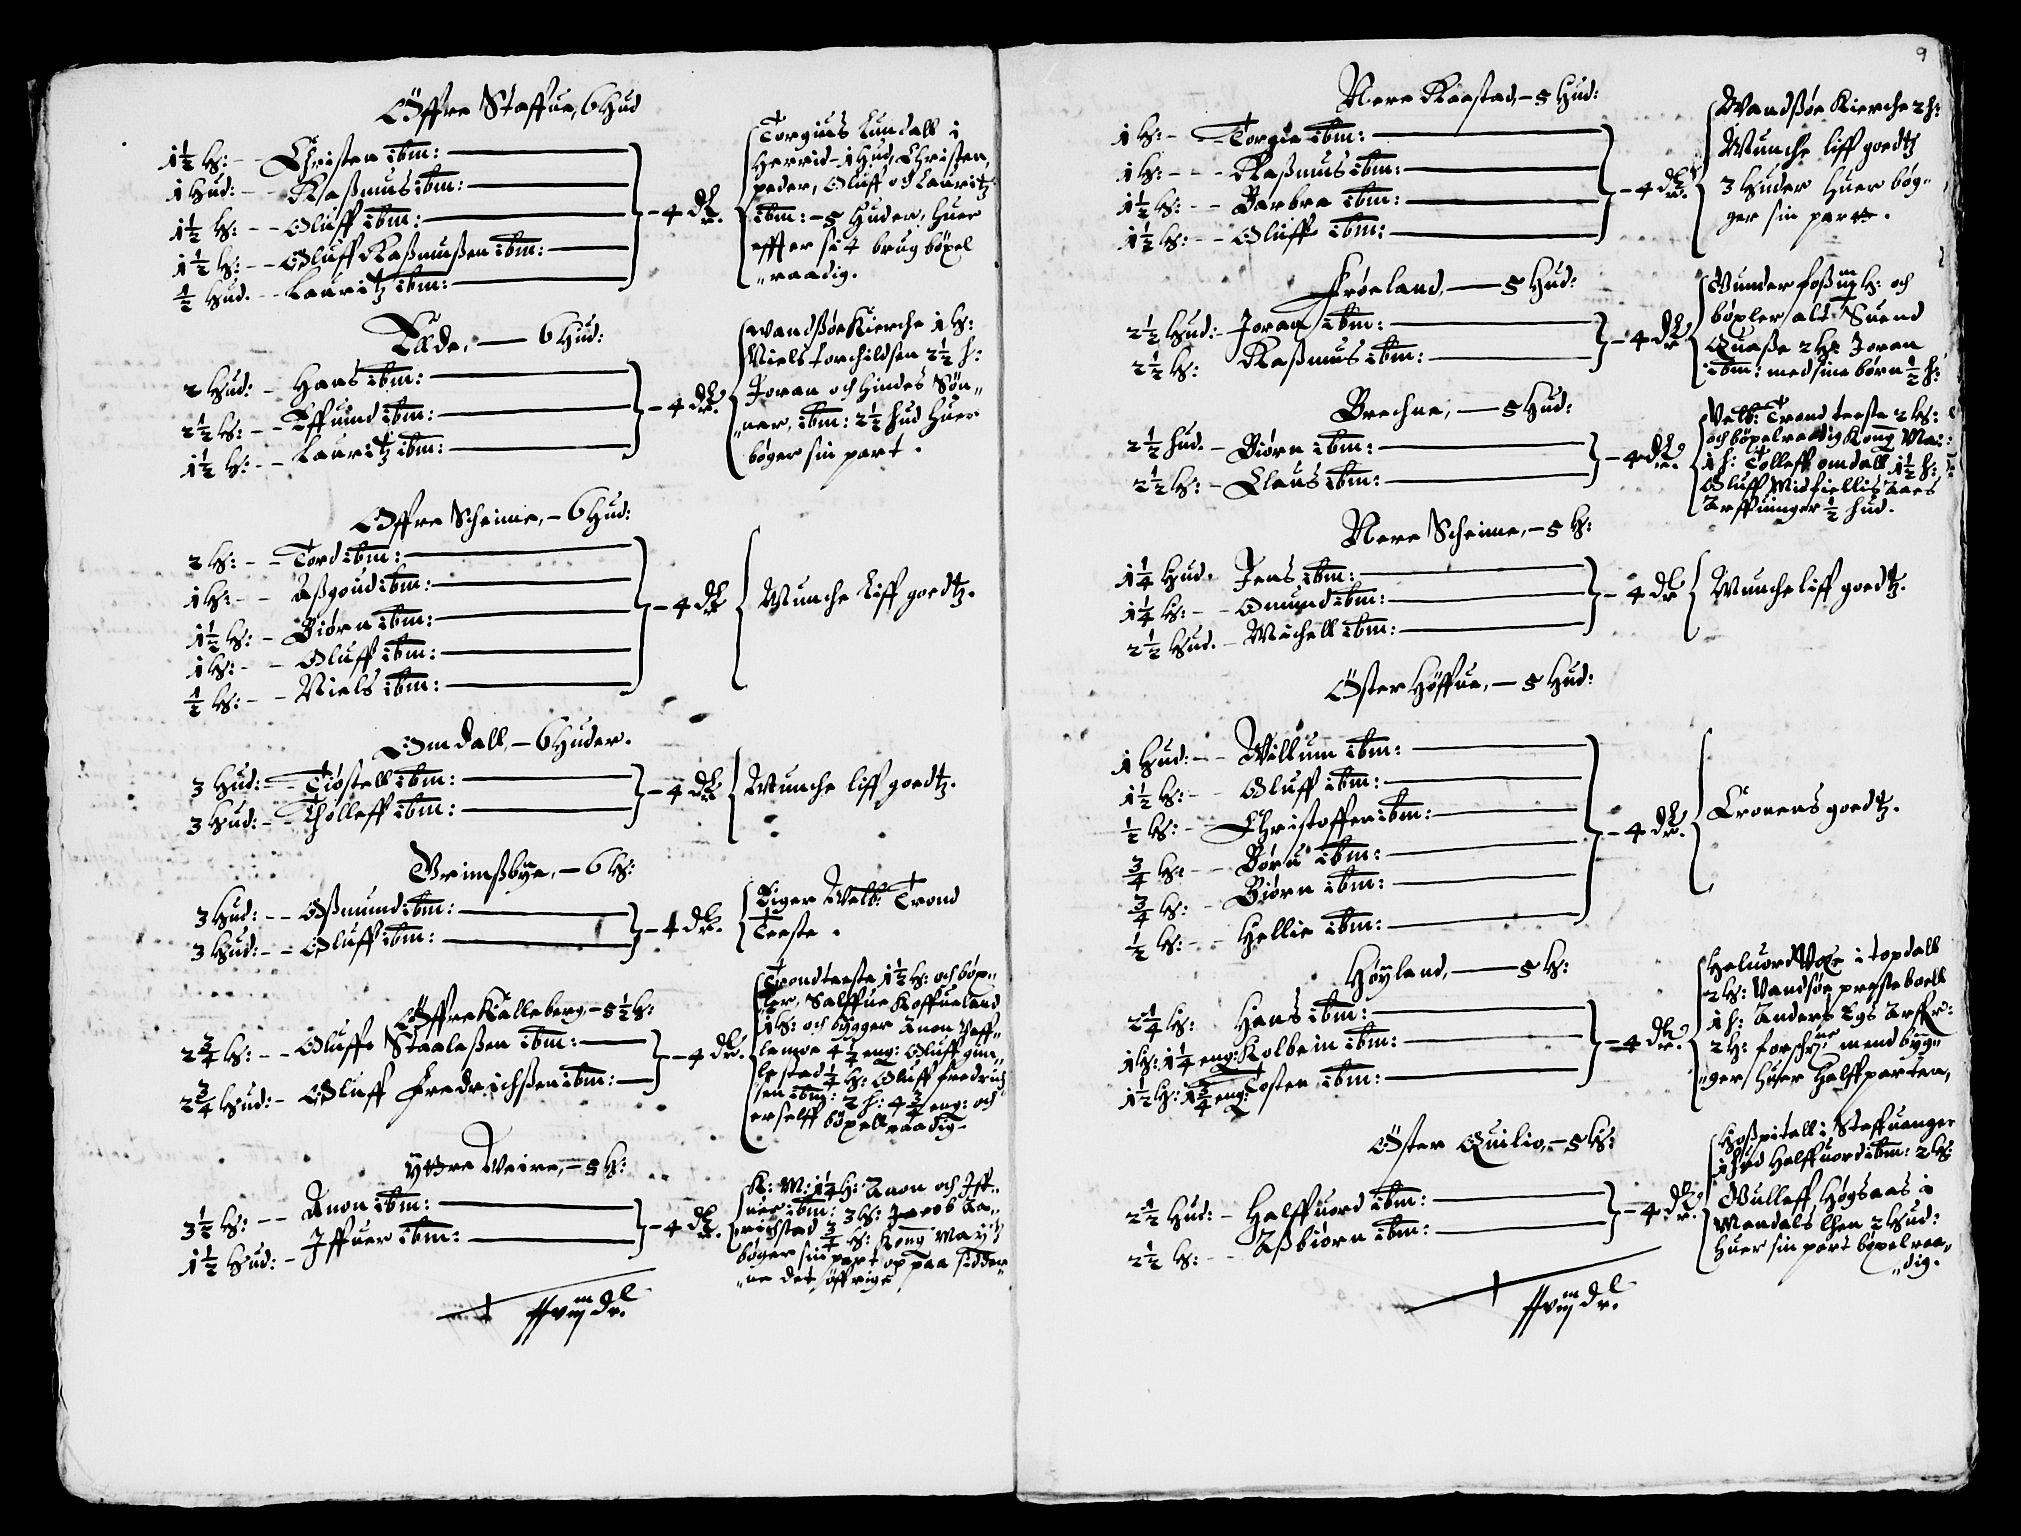 Öffre Staffue, 6 Hud
1½ H: -- Christen ibm:
1 Hud: -- Raßmus ibm:
1½ H: -- Oluff ibm:
1½ H: -- Oluff Raßmußen ibm:
½ Hud. -- Lauritz ibm:
- 4 dlr.
Torgius Lundall i
Herrid - 1 Hud, Christen,
peder, Oluff och Lauritz
ibm: - 5 Huder, huer
effter sit brug böxel
raadig.
Udde, — 6 Hud:
2 Hud: - Hans ibm:
2½ H: -- Effuind ibm:
1½ H: -- Lauritz ibm:
- 4 dlr.
Wandßöe Kierche 1 H:
Niels torchildsen 2½ h:
Joran och Hindes Sön-
ner, ibm: 2½ hud huer
böger sin part.
Öffre Scheime, - 6 Hud:
2 H: -- Tord ibm:
1 H: -- Aßgoud ibm:
1½ H: - Biörn ibm:
1 H: -- Oluff ibm:
½ H: -- Niels ibm:
- 4 dlr
Munche Liff goedtz.
Omdall, - 6 Huder.
3 Hud: -- Tiöstell ibm:
3 Hud: -- Tholleff ibm:
- 4 dlr
Munche liff goedtz.
Grimßbye, - 6 H:
3 Hud: -- Oßmund ibm:
3 Hud: -- Oluff ibm:
- 4 dlr.
Eiger Welb: Trond
Teeste.
Öffre Kalleberg, - 5½ H:
2¾ H: -- Oluff Staaleßen ibm:
2¾ Hud: - Oluff Fredrichßen ibm:
- 4 dlr.
Trond teeste 1½ H: och böx-
ler, Salffue Koffueland
1 H: och bygger Anon Veff-
lemoe 4½ eng: Oluff gim-
lestad ¼ H: Oluff fredrich
sen ibm: 2 h: 4¾ eng: och
er selff böxell raadig -
yttre Veire, - 5 H:
3½ H: -- Anon ibm:
1½ Hud: - Iffuer ibm:
- 4 dlr.
K: M: 1¼ H: Anon och Iff-
uer ibm: 3 H: Jacob La-
richstad ¾ H: Kong May:t
böger sin part op paa sidder
ne det öffrige
ffviij dlr.
9
Nere Raastad, - 5 Hud:
1 H: - Torgie ibm:
1 H: -- Raßmus ibm:
1½ H: -- Barbra ibm:
1½ H: -- Oluff ibm:
- 4 dlr.
Wandßöe Kierche 2 h:
Munche liff goedtz
3 Huder huer böy-
ger sin parte.
Fröeland, — 5 Hud:
2½ Hud: - Joran ibm:
2½ H: Raßmus ibm:
- 4 dlr
Gunder foß H: och
böxler alt Suend
Quaße 2 H: Joran
ibm: med sine börn ½ h:
Brechne, — 5 Hud:
2½ hud. - Biörn ibm:
2½ H: - Claus ibm:
- 4 dlr.
Velb: Trond teeste 2 H:
och böxelraadig Kong Ma:
1 h: Tolleff omdall 1½ h:
Oluff Midfiellis Aaes
Arffuinger ½ hud.
Nere Scheime, - 5 H:
1¼ Hud. Jens ibm:
1¼ H: -- Omund ibm:
2½ Hud. - Michell ibm:
- 4 dlr
Munche liff goedtz.
Öster Höffue, - 5 Hud:
1 Hud: -- Willum ibm:
1½ H: -- Oluff ibm:
½ H: -- Christoffer ibm:
¾ H: -- Böru ibm:
¾ H: -- Biörn ibm:
½ H: -- Hellie ibm:
- 4 dlr.
Cronens goedtz.
Höyland, — 5 H:
2¼ H: Hans ibm:
1 H: 1¼ eng: Kolbein ibm:
1½ H: 1¾ eng: Tosten ibm:
- 4 dlr.
Heluord Voxe i topdall
2 H: Vandsöe presteboell
1 h: Anders Egs Arffr:
2 H: for mend byg-
ger huer Halffparten,
Öster Quilio, - 5 H:
2½ Hud: - Halffuord ibm:
2½ H: -- Aßbiörn ibm:
- 4 dlr.
Hoßpitall i Staffuanger
1 hud Halffuord ibm: 2 H:
Gulleff Högsaas i
Mandals lhen 2 Hud:
huer sin part böxel raa-
dig.
ffviij dlr.